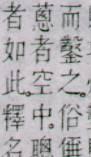 而鑿之。俗
蔥者空中。聰
者如此。釋名